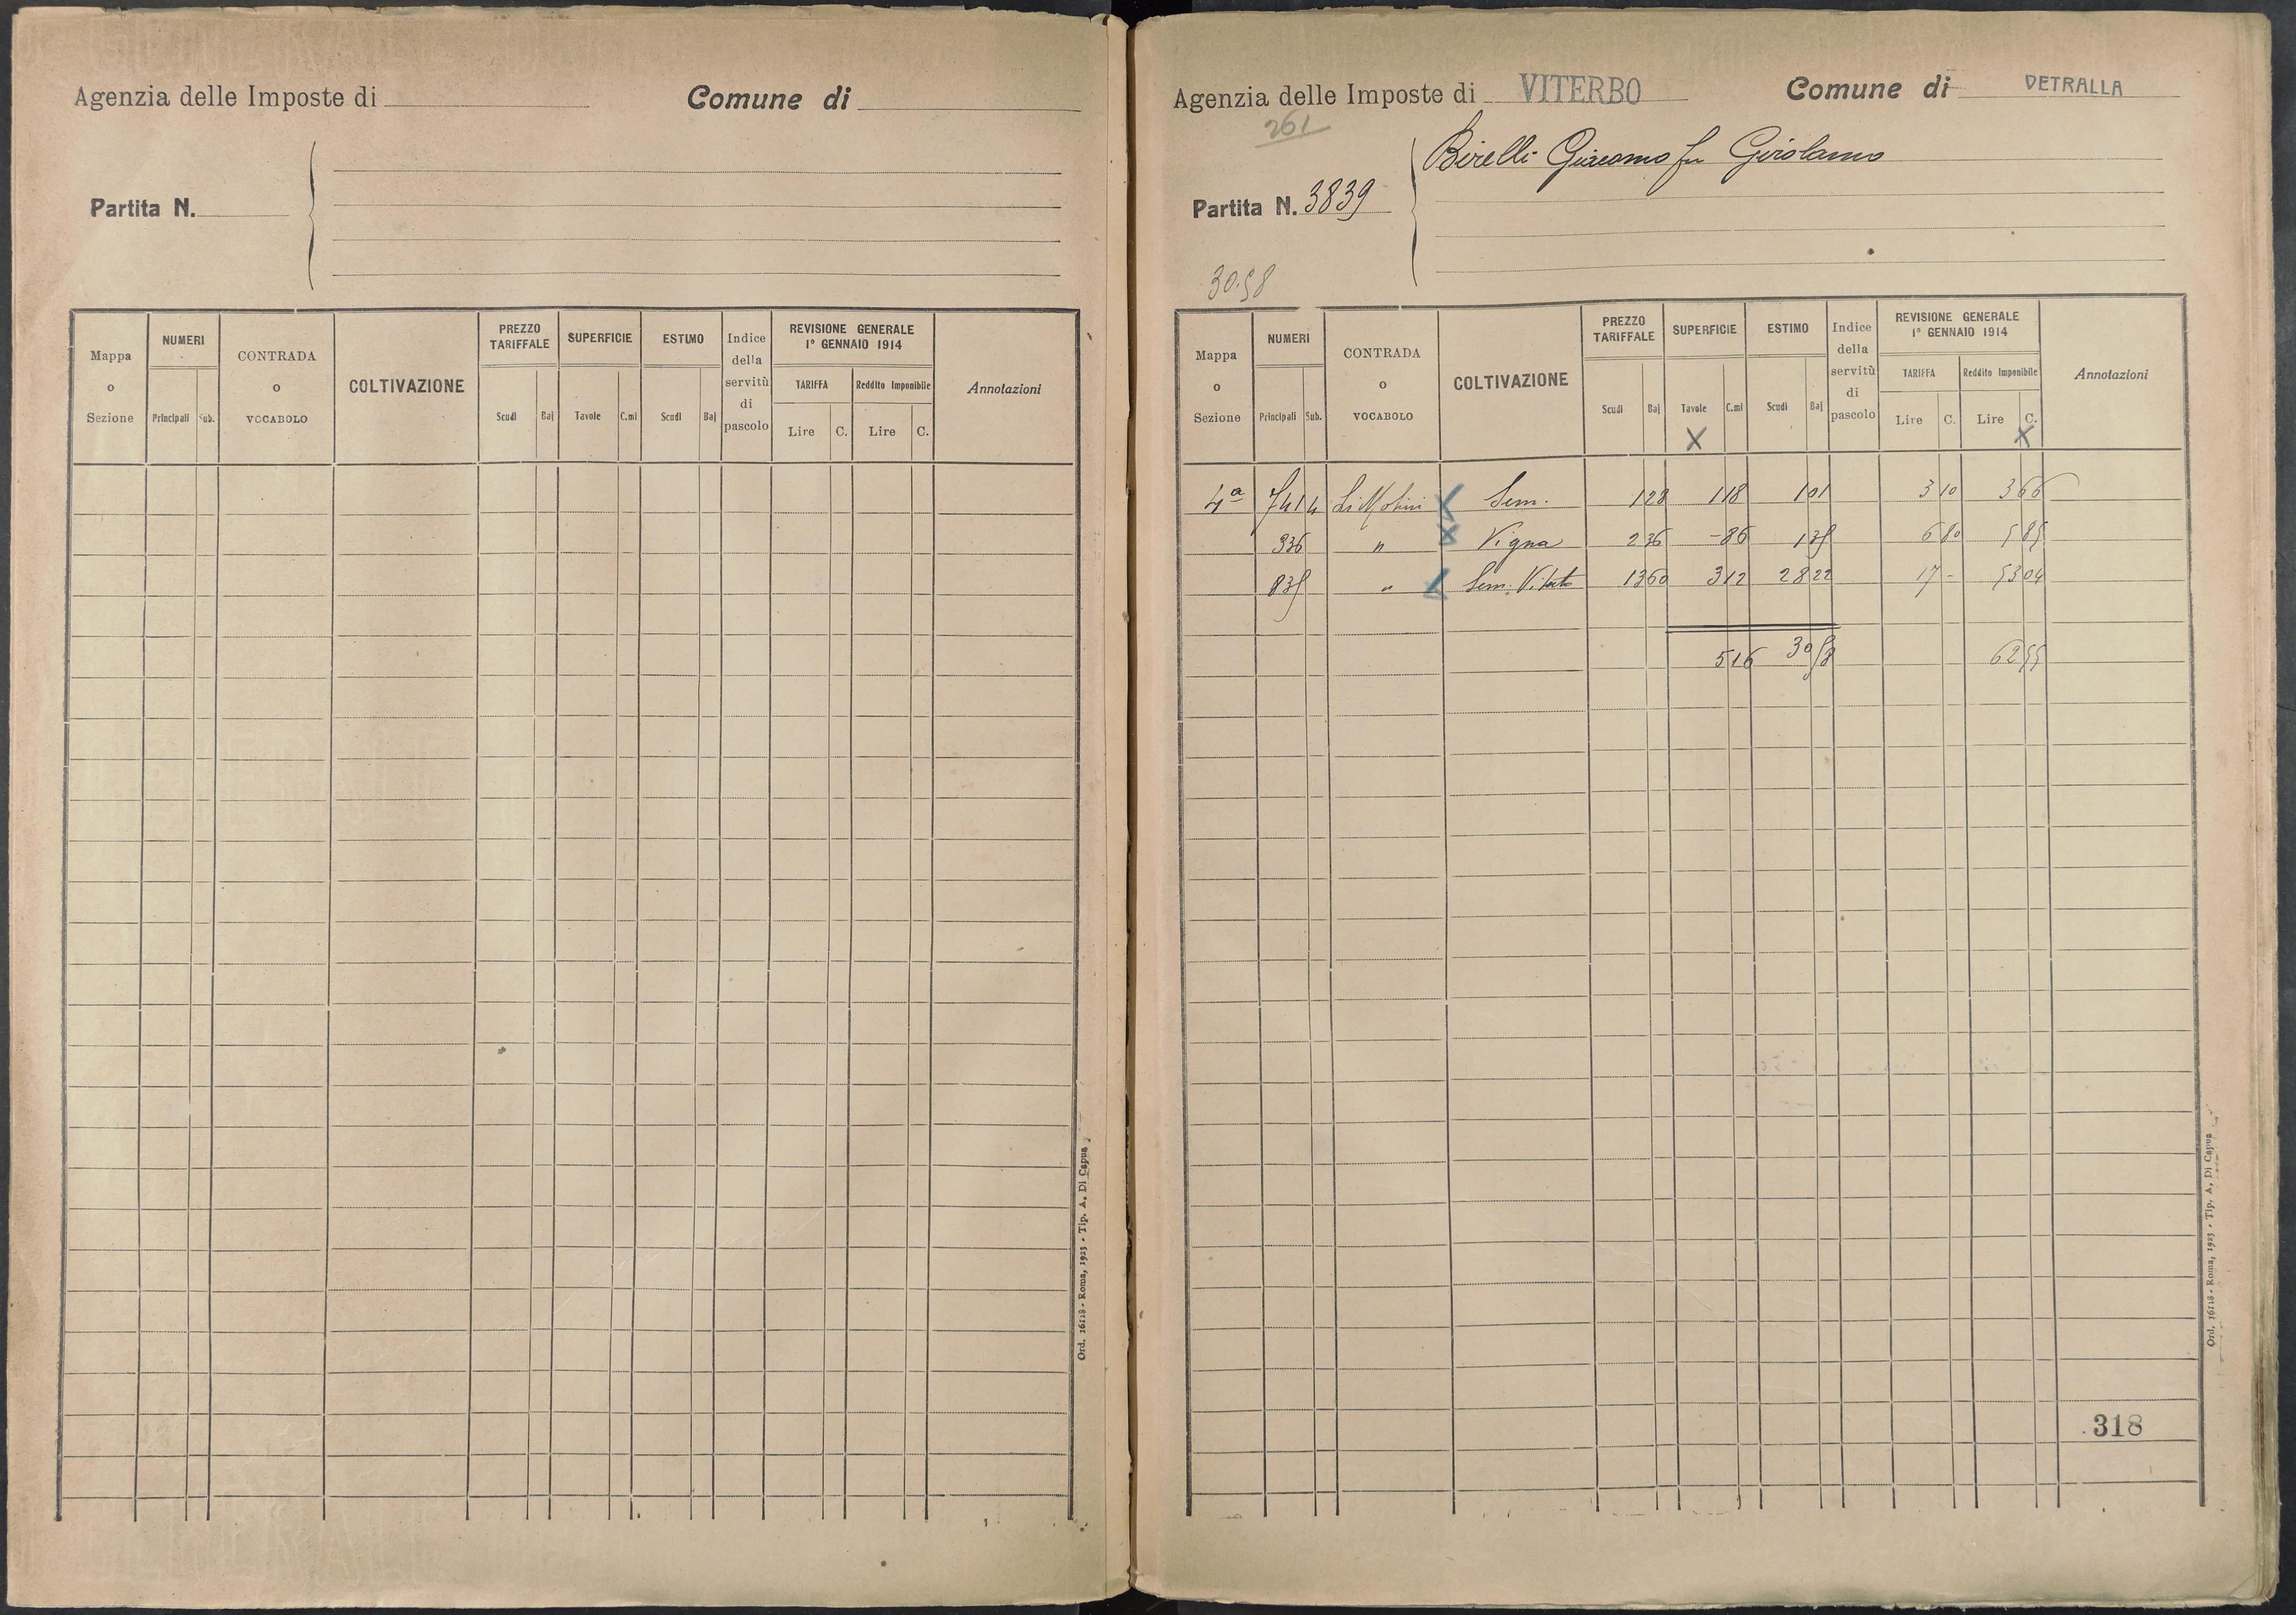 Agenzia delle Imposte di
Comune di
Partita N.
Mappa o Sezione
NUMERI
Principali Sub.
CONTRADA o VOCABOLO
COLTIVAZIONE
PREZZO TARIFFALE
Scudi Baj
SUPERFICIE
Tavole C.mi
ESTIMO
Scudi Baj
Indice della servitù di pascolo
REVISIONE GENERALE
1º GENNAIO 1914
TARIFFA Reddito Imponibile
Lire C. Lire C.
Annotazioni
Ord. 16118 - Roma, 1923 - Tip. A. Di Capua
Agenzia delle Imposte di VITERBO
Comune di VETRALLA
261
Birelli Giacomo fu Girolamo
Partita N. 3839
30.58
Mappa o Sezione
NUMERI
Principali Sub.
CONTRADA o VOCABOLO
COLTIVAZIONE
PREZZO TARIFFALE
Scudi Baj
SUPERFICIE
Tavole C.mi
X
ESTIMO
Scudi Baj
Indice della servitù di pascolo
REVISIONE GENERALE
1º GENNAIO 1914
TARIFFA Reddito Imponibile
Lire C. Lire C.
X
Annotazioni
4ª 7414 Li Molini X Sem. 128 118 101 3 10 3 66
336 " X Vigna 236 -86 135 6 80 5 85
835 " Sem. Vitato 1360 312 2822 17 - 53 04
516 3058 62 55
318
Ord. 16118 - Roma, 1923 - Tip. A. Di Capua